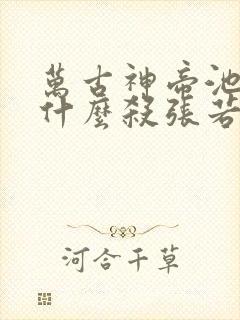 萬古神帝池
什麼殺張若
河合千草